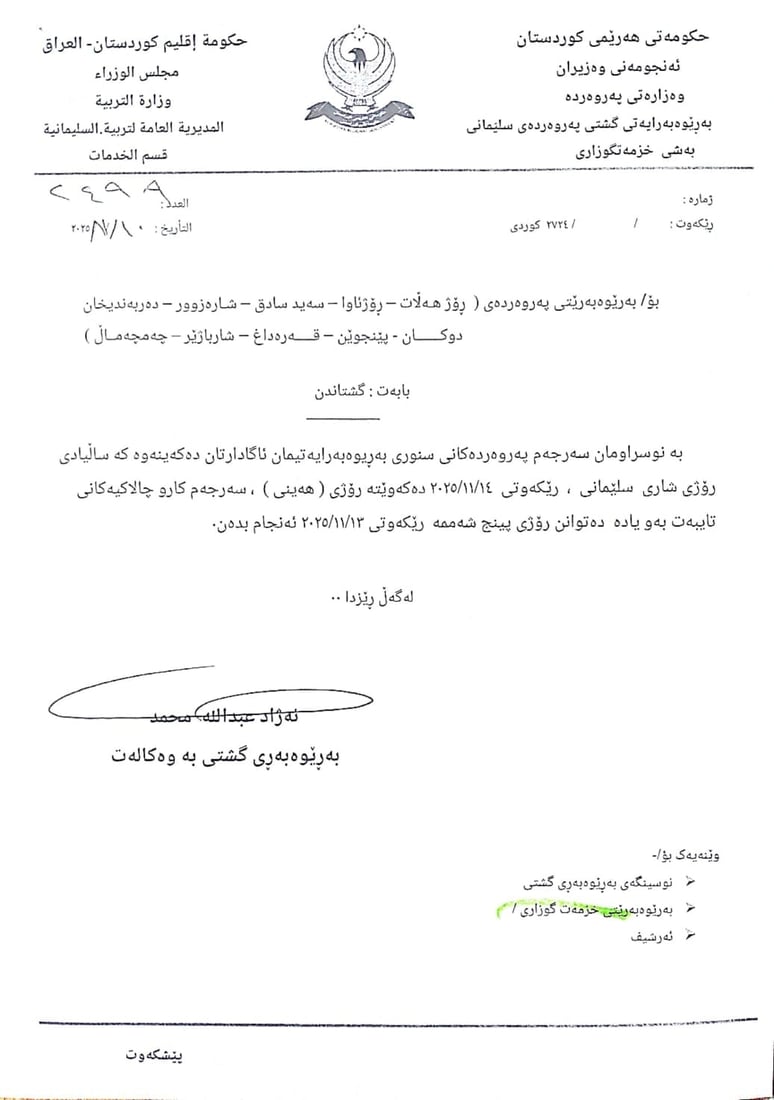 حكومەتی هەرێمی كوردستان
ئەنجومەنی وەزیران
وەزارەتی پەروەردە
بەڕێوەبەرایەتی گشتی پەروەردەی سلێمانی
بەشی خزمەتگوزاری
حكومة إقليم كوردستان- العراق
مجلس الوزراء
وزارة التربية
المديرية العامة لتربية.السليمانية
قسم الخدمات
ژمارە :
ڕێكەوت : / / ٢٧٢٤ كوردی
العدد: ٢٤٩٨
التأريخ: ٢٠٢٥/١١/١٠
بۆ/ بەرێوەبەرێتی پەروەردەی ( ڕۆژهەڵات – ڕۆژئاوا – سەید سادق – شارەزوور – دەربەندیخان
دوكــــان - پێنجوێن – قــــەرەداغ – شارباژێر – چەمچەمـاڵ )
بابەت : گشتاندن
بە نوسراومان سەرجەم پەروەردەكانی سنوری بەڕیوەبەرایەتیمان ئاگادارتان دەكەینەوە كە ساڵیادی
رۆژی شاری سلێمانی ، رێكەوتی ٢٠٢٥/١١/١٤ دەكەوێتە رۆژی ( هەینی ) ، سەرجەم كارو چالاكیەكانی
تایبەت بەو یادە دەتوانن رۆژی پینج شەممە رێكەوتی ٢٠٢٥/١١/١٣ ئەنجام بدەن.
لەگەڵ رێزدا ..
ئەژاد عبدالله محمد
بەڕێوەبەڕی گشتی بە وەكالەت
وێنەیەک بۆ/-
➢ نوسینگەی بەڕێوەبەڕی گشتی
➢ بەرێوەبەرێتی خزمەت گوزاری /
➢ ئەرشیف
پێشكەوت